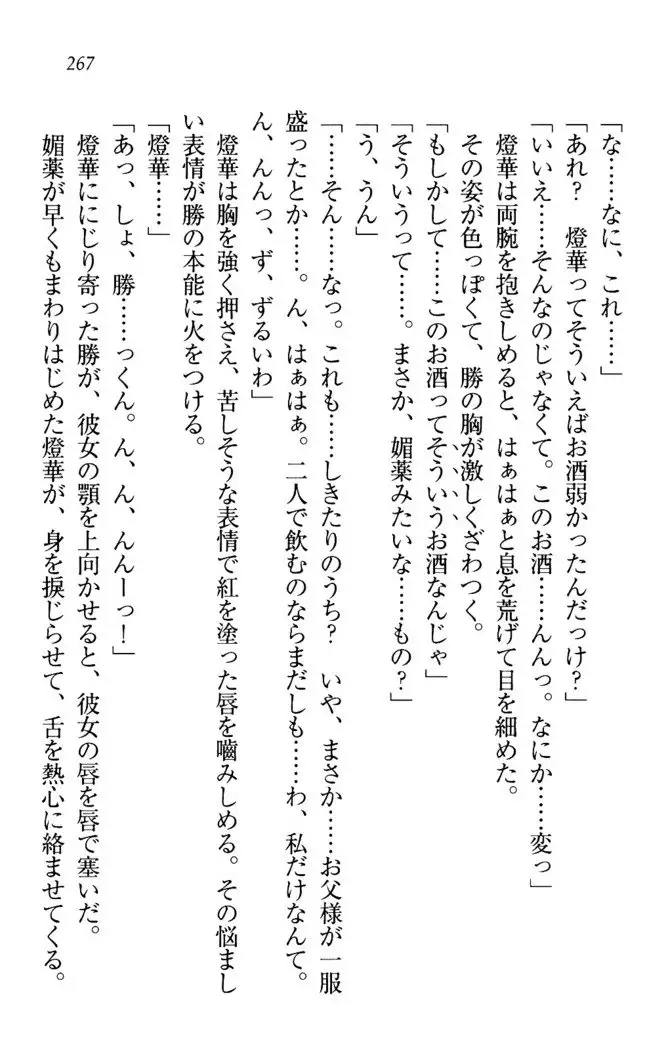 267
「な……なに、これ……」
「あれ？　燈華ってそういえばお酒弱かったんだっけ？」
「いいえ……そんなのじゃなくて。このお酒……んんっ。なにか……変っ」
燈華は両腕を抱きしめると、はぁはぁと息を荒げて目を細めた。
その姿が色っぽくて、勝の胸が激しくざわつく。
「もしかして……このお酒ってそういうお酒なんじゃ」
「そういうって……。まさか、媚薬みたいな……もの？」
「う、うん」
「……そん……なっ。これも……しきたりのうち？　いや、まさか……お父様が一服
盛ったとか……。ん、はぁはぁ。二人で飲むのならまだしも……わ、私だけなんて。
ん、んんっ、ず、ずるいわ」
燈華は胸を強く押さえ、苦しそうな表情で紅を塗った唇を嚙みしめる。その悩まし
い表情が勝の本能に火をつける。
「燈華……」
「あっ、しょ、勝……っくん。ん、ん、んんーっ！」
燈華ににじり寄った勝が、彼女の顎を上向かせると、彼女の唇を唇で塞いだ。
媚薬が早くもまわりはじめた燈華が、身を捩じらせて、舌を熱心に絡ませてくる。